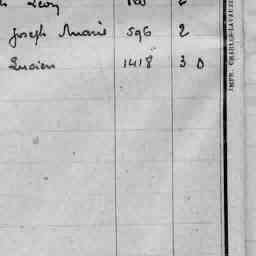 Léon
Joseph Marie 596 2
Lucien 1418 3 D
IMPR. CHARLES-LAVAUZELLE